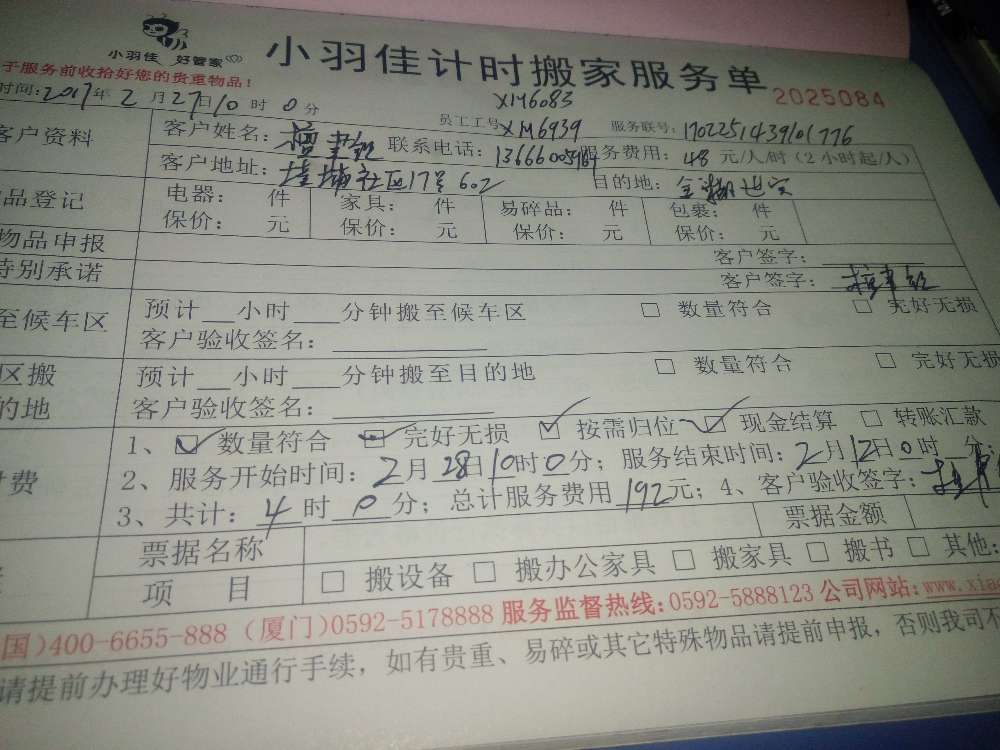 小羽佳 好管家
小羽佳计时搬家服务单 2025084
于服务前收拾好您的贵重物品！
时间：2017年2月27日10时0分 XM6083
员工工号 XM6939 服务联号：170225143910l776
客户资料 客户姓名： 联系电话： 服务费用：48元/人/时（2小时起/人）
客户地址： 社区17号602 目的地：
品登记 电器： 件 家具： 件 易碎品： 件 包裹： 件
保价： 元 保价： 元 保价： 元 保价： 元
物品申报 客户签字：
特别承诺 客户签字：
至候车区 预计 小时 分钟搬至候车区 □ 数量符合 □ 完好无损
客户验收签名：
区搬 预计 小时 分钟搬至目的地 □ 数量符合 □ 完好无损
的地 客户验收签名：
付费 1、☑ 数量符合 ☑ 完好无损 ☑ 按需归位 ☑ 现金结算 □ 转账汇款
2、服务开始时间：2月28日10时0分；服务结束时间：2月12日0时 分；
3、共计：4时0分；总计服务费用192元；4、客户验收签字：
票据名称 票据金额
项 目 □ 搬设备 □ 搬办公家具 □ 搬家具 □ 搬书 □ 其他：
国）400-6655-888（厦门）0592-5178888 服务监督热线：0592-5888123 公司网站：www.xiao
请提前办理好物业通行手续，如有贵重、易碎或其它特殊物品请提前申报，否则我司不